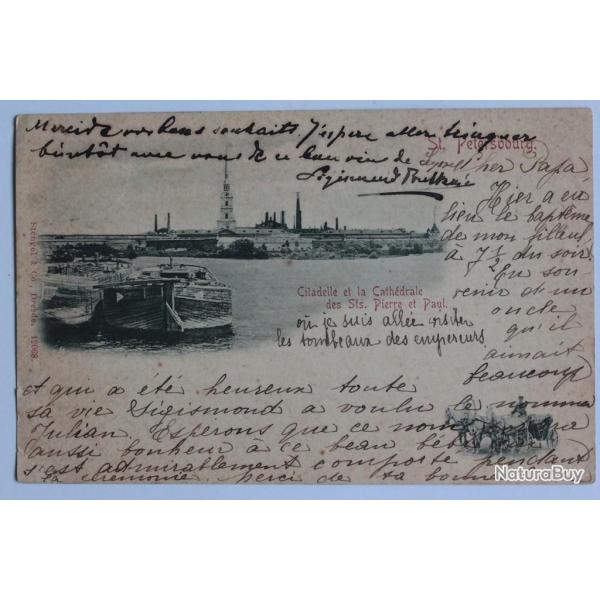 Merci de vos bons souhaits. J'espère aller trinquer
bientôt avec vous de ce bon vin de
Sigismond
St. Petersbourg.
cher Papa,
Hier a eu
lieu le baptême
de mon filleul,
à 7 1/2 du soir.
En sou-
venir d'un
oncle
qu'il
aimait
beaucoup
Citadelle et la Cathédrale
des Sts. Pierre et Paul.
où je suis allée visiter
les tombeaux des empereurs.
Stengel & Co., Dresde. 11068.
et qui a été heureux toute
sa vie Sigismond a voulu le nommer
Julian. Esperons que ce nom
aussi bonheur à ce beau bébé
s'est admirablement comporté pendant
la cérémonie merci de ta bonne
NaturaBuy